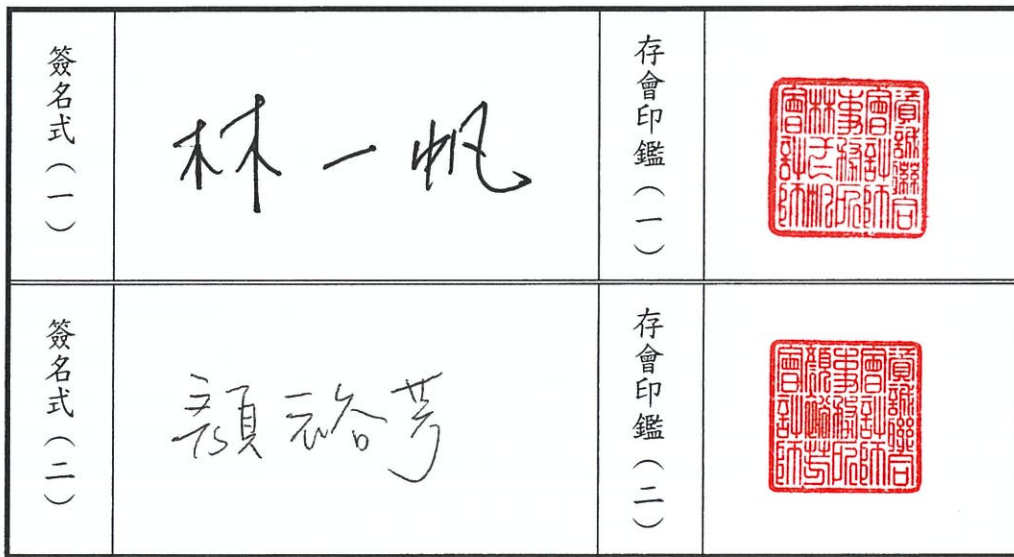 簽名式（一）
林一帆
存會印鑑（一）
資誠聯合
會計師
事務所
林一帆
會計師
簽名式（二）
顏裕芳
存會印鑑（二）
資誠聯合
會計師
事務所
顏裕芳
會計師